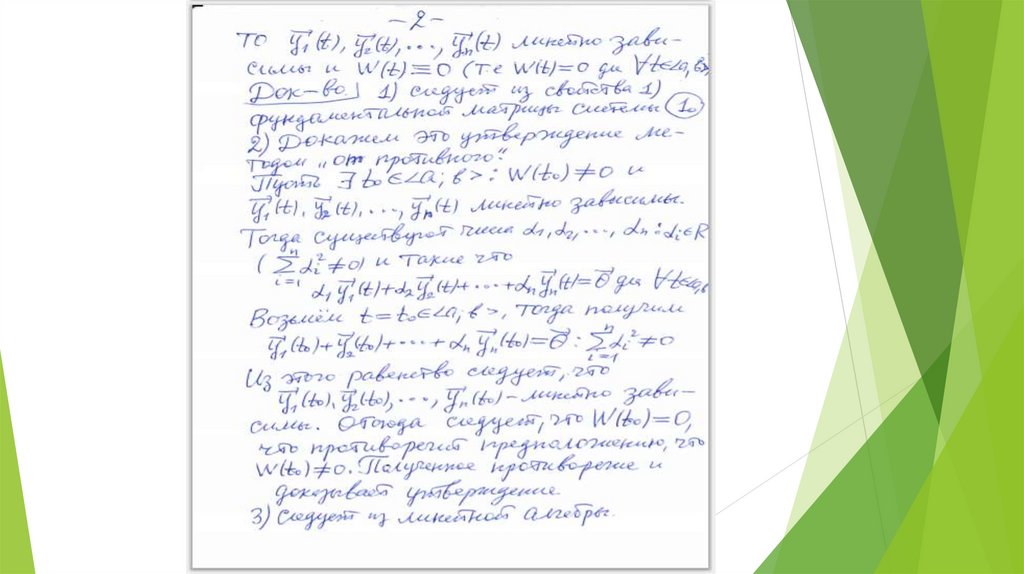 -2-
то y⃗₁(t), y⃗₂(t), ..., y⃗ₙ(t) линейно зави-
симы и W(t)≡0 (т.е W(t)=0 для ∀t∈<a,b>)
Док-во 1) следует из свойства 1)
фундаментальной матрицы системы 1₀
2) Докажем это утверждение ме-
тодом „от противного".
Пусть ∃ t₀∈<a; b>: W(t₀)≠0 и
y⃗₁(t), y⃗₂(t), ..., y⃗ₙ(t) линейно зависимы.
Тогда существуют числа α₁, α₂, ..., αₙ: αᵢ∈R
(∑ᵢ₌₁ⁿ αᵢ²≠0) и такие что
α₁y⃗₁(t)+α₂y⃗₂(t)+...+αₙy⃗ₙ(t)=θ⃗ для ∀t∈<a,b
Возьмём t=t₀∈<a; b>, тогда получим
y⃗₁(t₀)+y⃗₂(t₀)+...+αₙy⃗ₙ(t₀)=θ⃗: ∑ᵢ₌₁ⁿ αᵢ²≠0
Из этого равенство следует, что
y⃗₁(t₀), y⃗₂(t₀), ..., y⃗ₙ(t₀) - линейно зави-
симы. Отсюда следует, что W(t₀)=0,
что противоречит предположению, что
W(t₀)≠0. Полученное противоречие и
доказывает утверждение.
3) Следует из линейной алгебры.